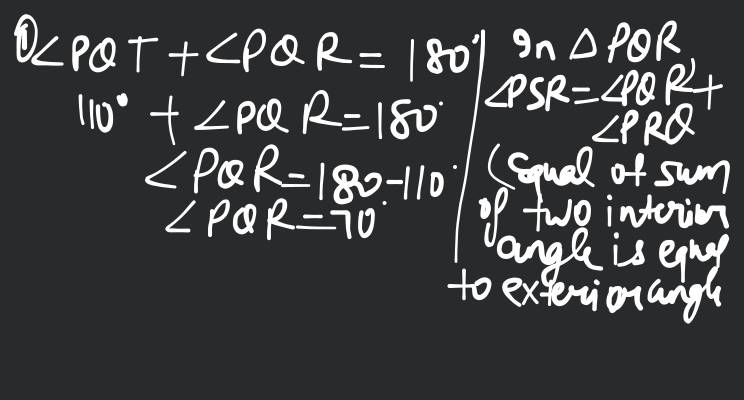 ① ∠PQT + ∠PQR = 180°
110° + ∠PQR = 180°
∠PQR = 180 - 110°
∠PQR = 70°
In △ PQR
∠PSR = ∠PQR +
∠PRQ
(Equal of sum
of two interior
angle is equal
to exterior angle